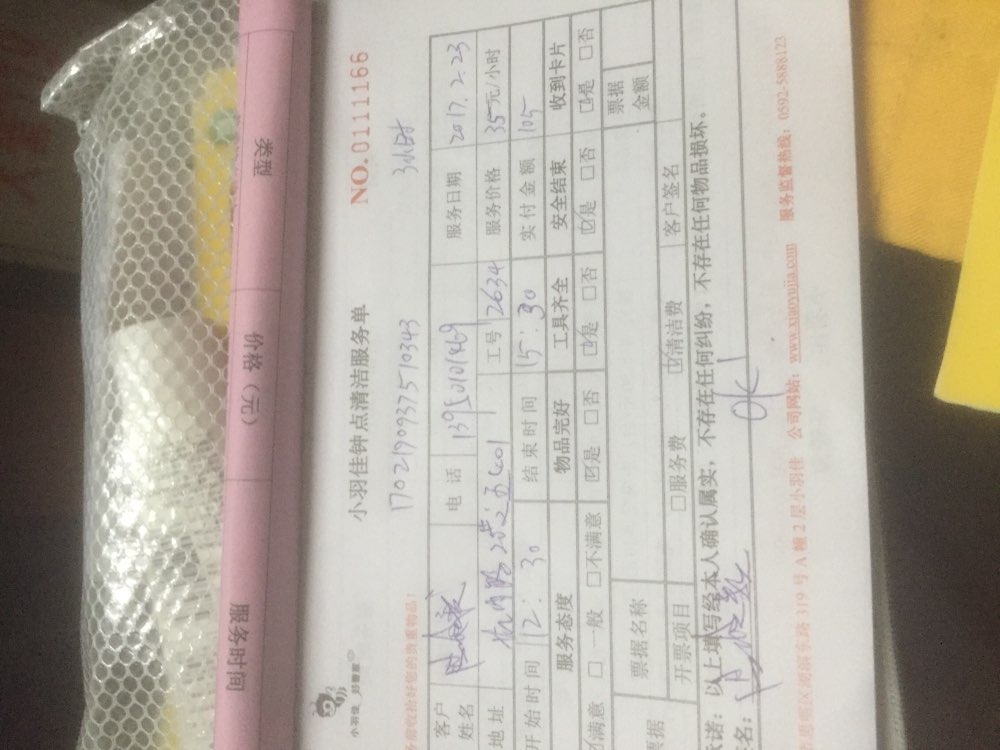 类型
价格（元）
服务时间
小羽佳 好管家
小羽佳钟点清洁服务单
NO.0111166
17021909375710343
3小时
务前收拾好您的贵重物品！
客户姓名
电 话
服务日期 2017.2.23
地址
工号 2634 服务价格 35元/小时
开始时间 12:30 结束时间 15:30 实付金额 105
服务态度 物品完好 工具齐全 安全结束 收到卡片
☑满意 □一般 □不满意 ☑是 □否 ☑是 □否 ☑是 □否 ☑是 □否
票据 票据名称 票据金额
开票项目 □服务费 ☑清洁费 客户签名
承诺：以上填写经本人确认属实，不存在任何纠纷，不存在任何物品损坏。
名：
OK
区湖滨东路 319 号 A 幢 2 层小羽佳 公司网站：www.xiaoyujia.com 服务监督热线：0592-5888123